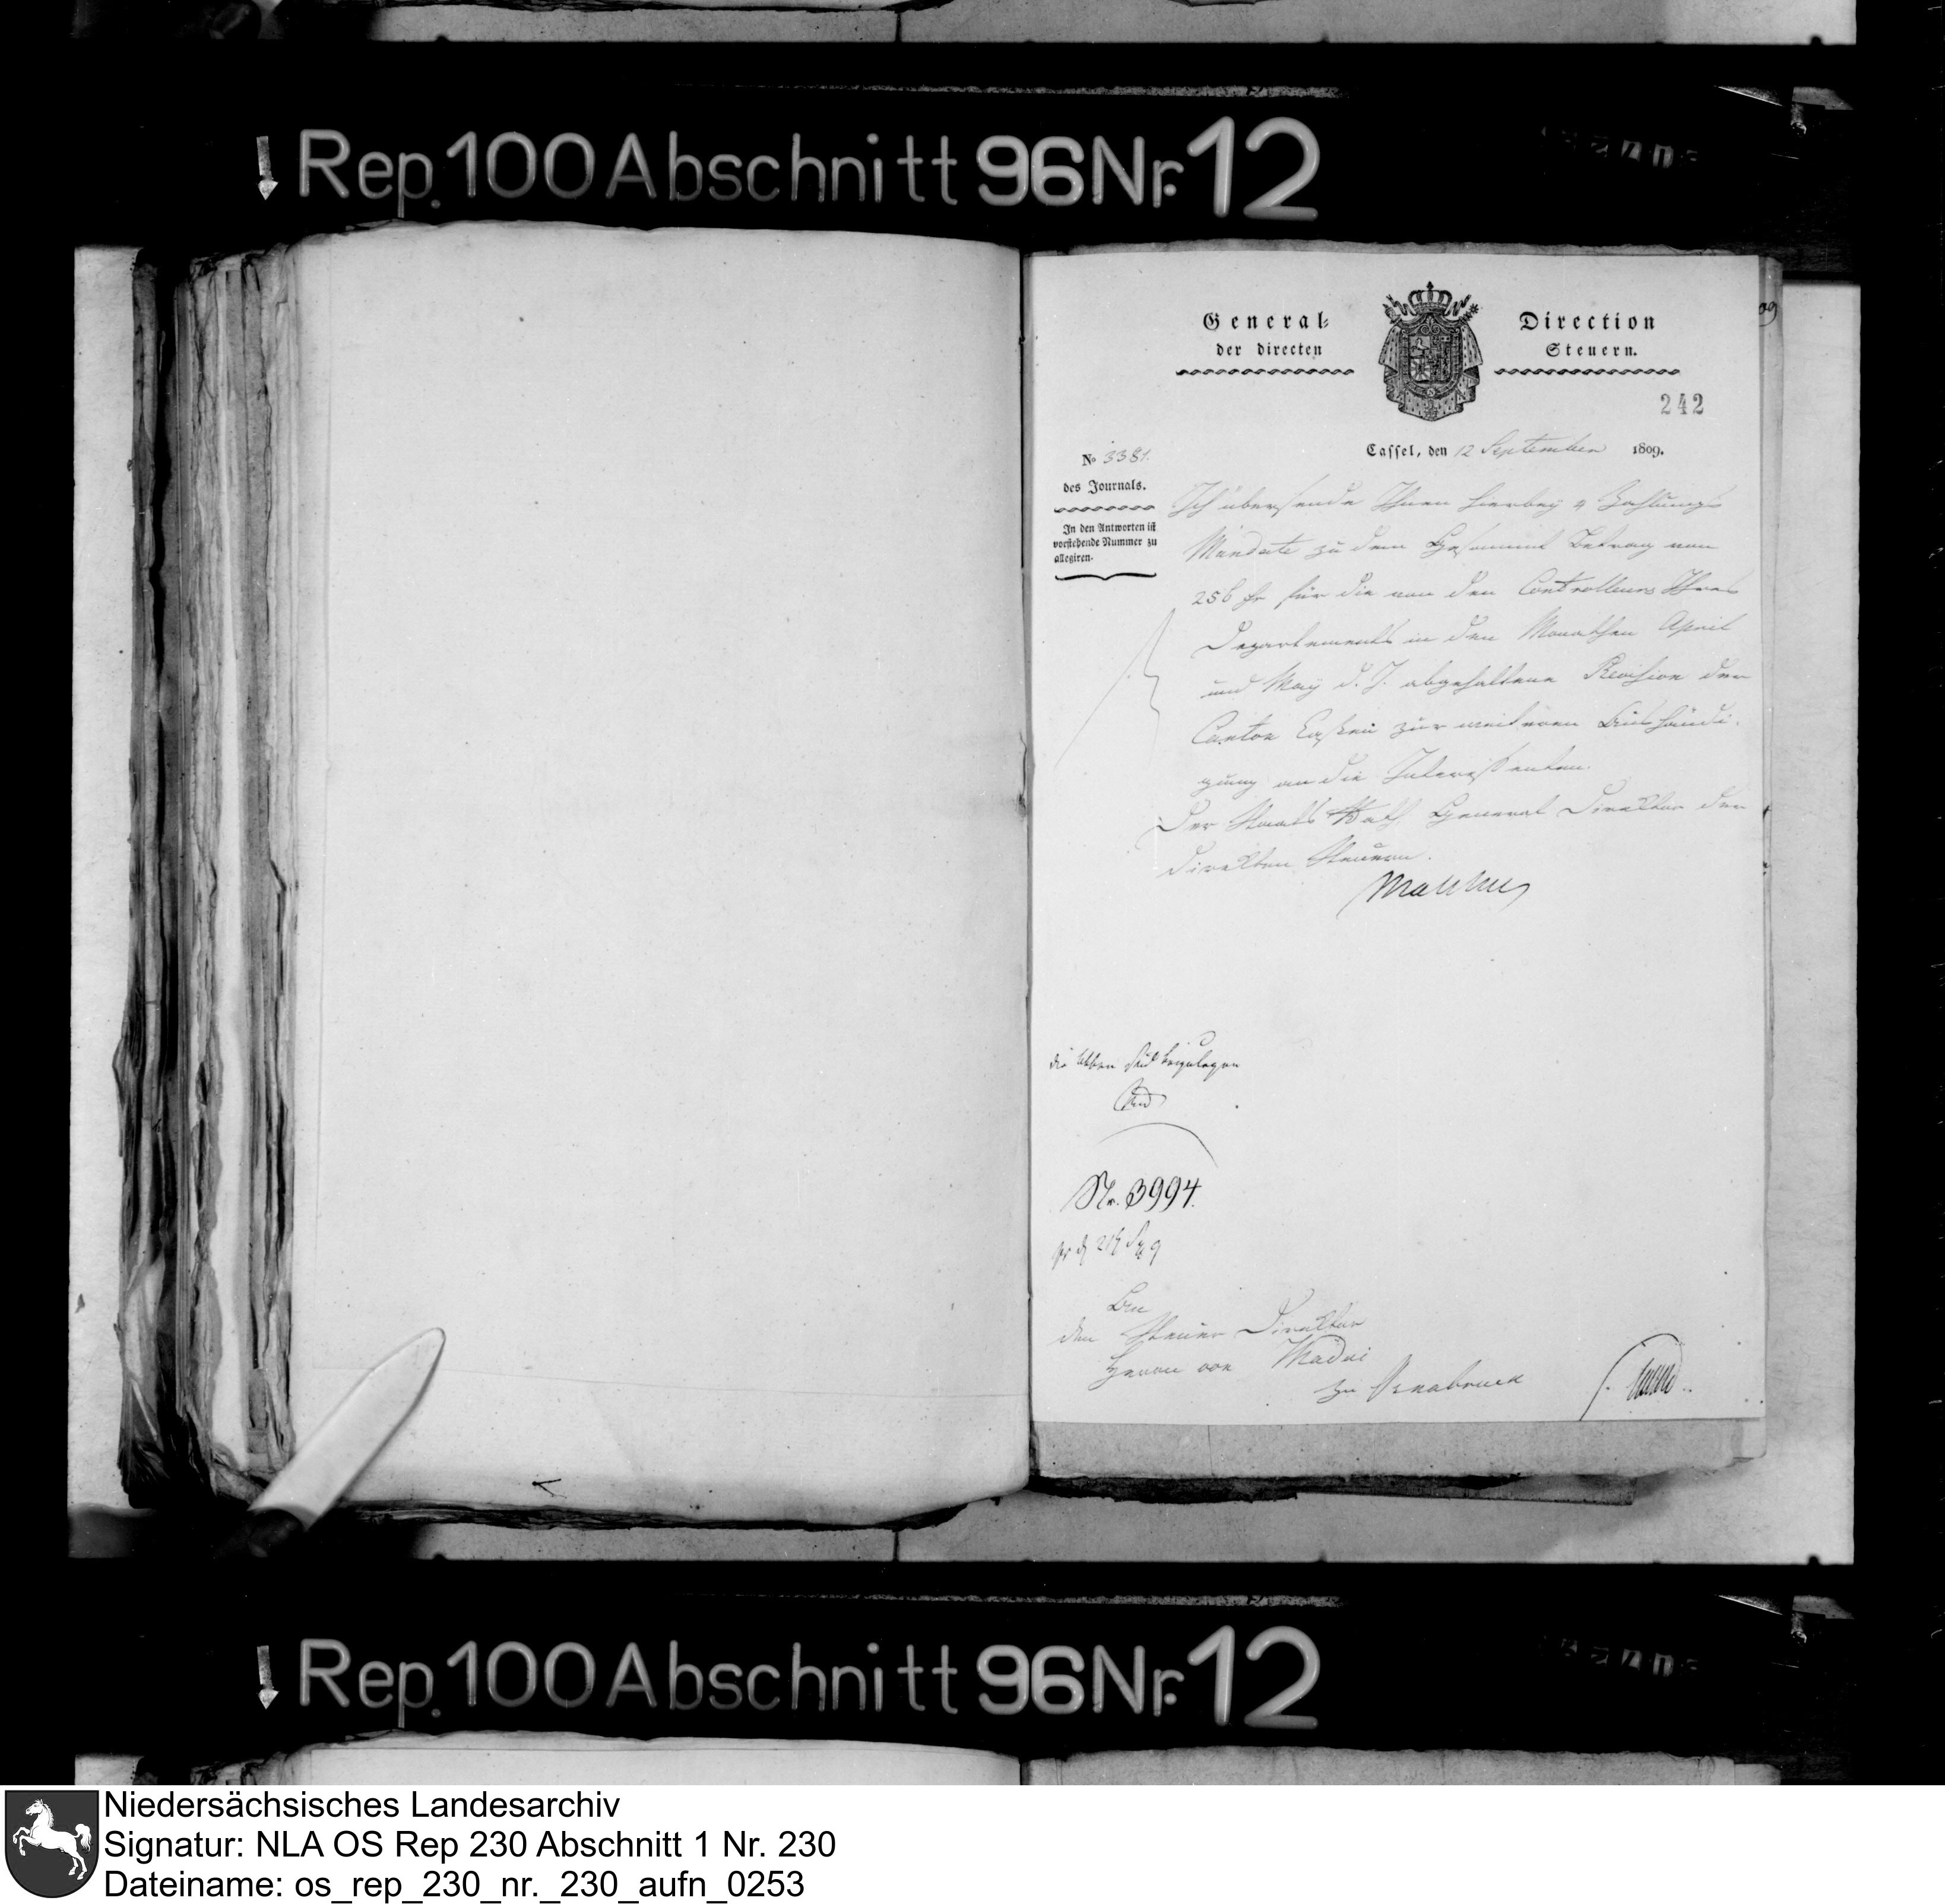 Rep. 100 Abschnitt 96 Nr. 12
General- Direction
der directen Steuern.
242
Cassel, den 12 September 1809.
No 3381.
des Journals.
In den Antworten ist
vorstehende Nummer zu
allegiren.
Ich übersende Ihnen hierbey 4 Zahlungs
Mandate zu dem Gesammt Betrag von
256 fr für die von den Controlleurs Ihres
Departements in den Monathen April
und May d. J. abgehaltene Revision der
Canton Cassen zur weiteren Aushändi-
gung an die Interessenten.
Der Staats Rath General Direktor der
direkten Steuern.
Malchus
die selben sind beyzulegen
Nr. 3994.
An
den Steuer Direktor
Herrn von
zu Osnabrück
Rep. 100 Abschnitt 96 Nr. 12
Niedersächsisches Landesarchiv
Signatur: NLA OS Rep 230 Abschnitt 1 Nr. 230
Dateiname: os_rep_230_nr._230_aufn_0253